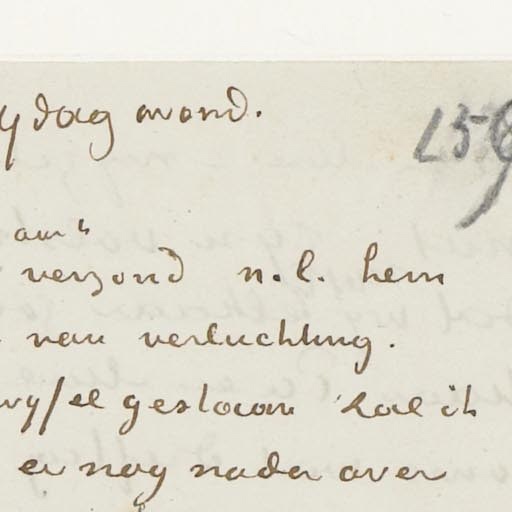 ydag avond. 159
aan
verzond n.l. hem
van verluchting.
wyfel gestaan zal ik
er nog nader over